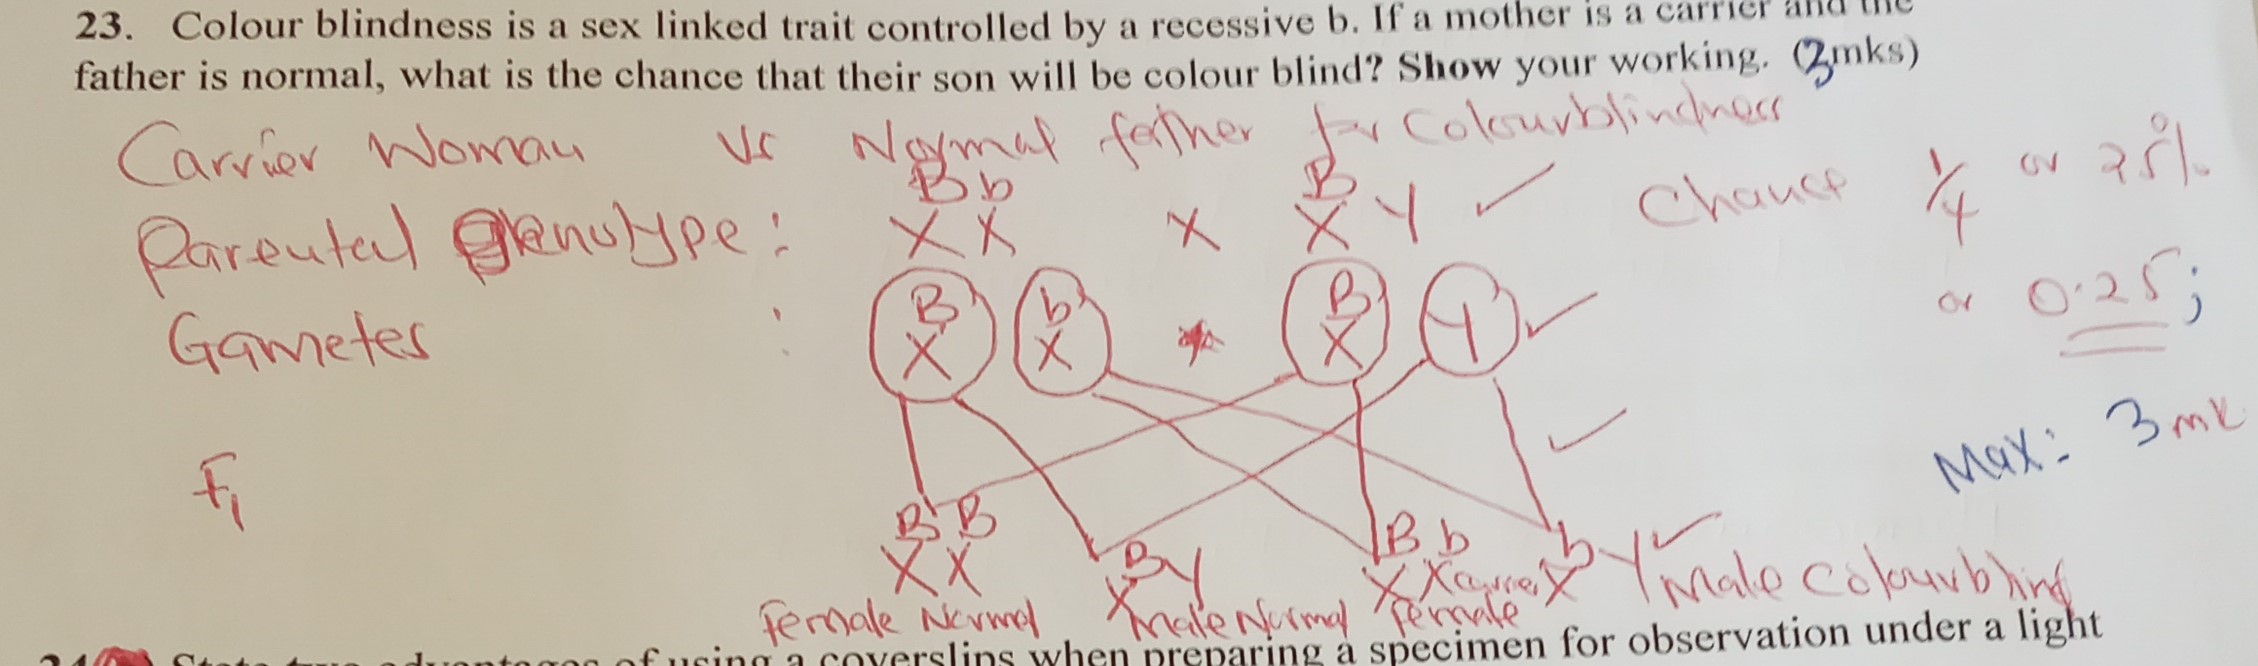 23. Colour blindness is a sex linked trait controlled by a recessive b. If a mother is a carrier and the
father is normal, what is the chance that their son will be colour blind? Show your working. (3mks)
Carrier Woman Vs Normal father for Colourblindness
Parental genotype: X^B X^b x X^B Y ✓ Chance 1/4 or 25%
or 0.25;
Gametes : X^B X^b * X^B Y ✓
✓
Max: 3 mk
F1
X^B X^B X^B Y X^B X^b carrier X^b Y ✓ Male Colourblind
Female Normal Male Normal female
of using a coverslips when preparing a specimen for observation under a light